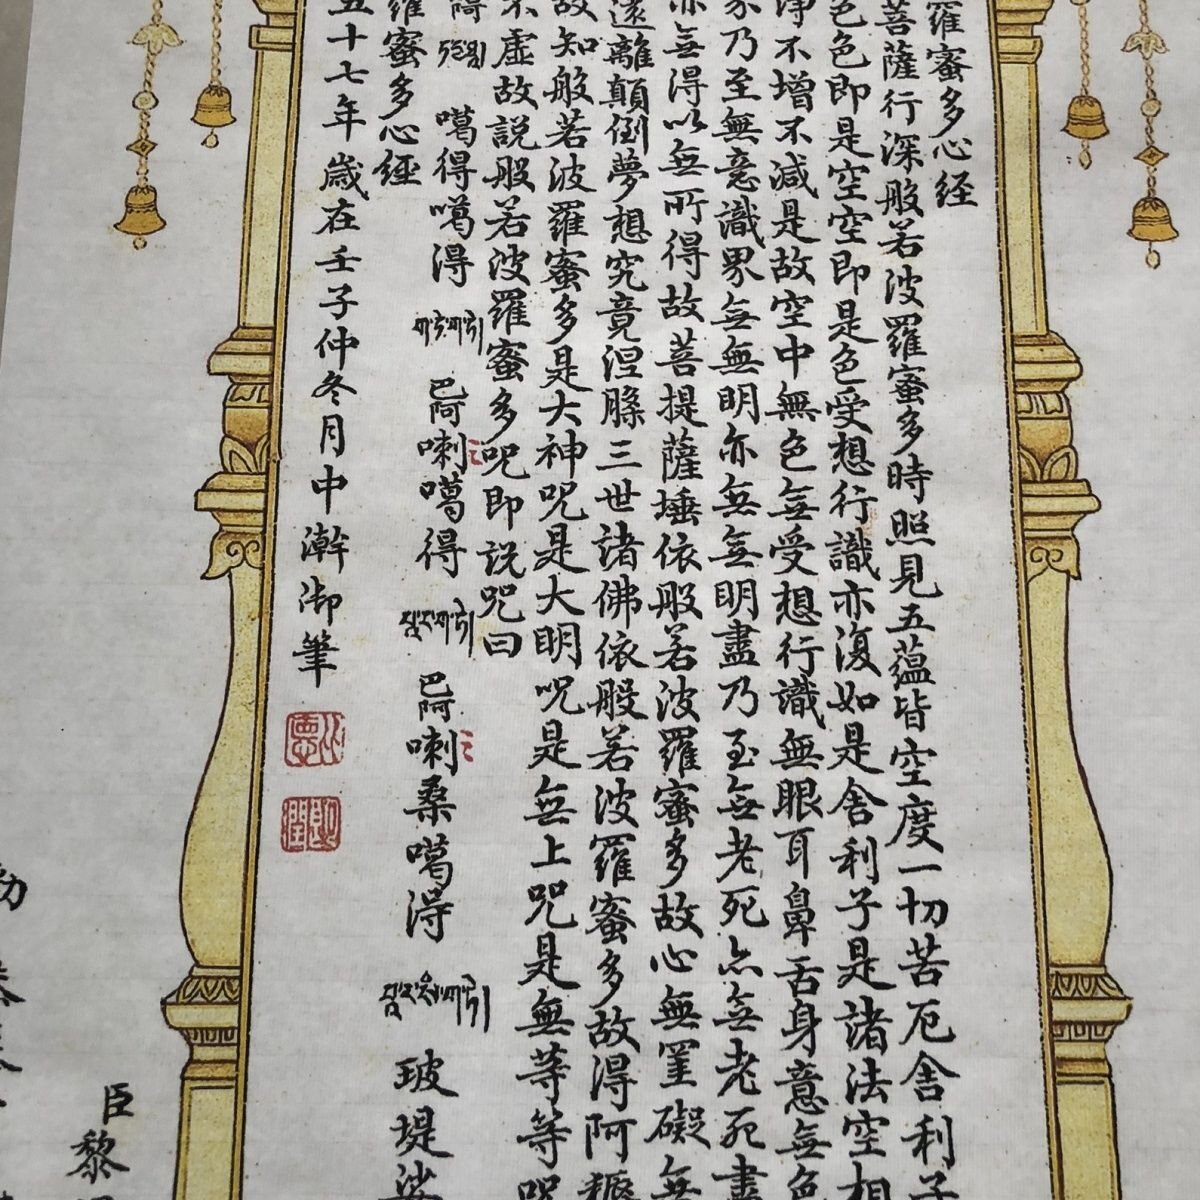 羅蜜多心经
菩薩行深般若波羅蜜多時照見五蕴皆空度一切苦厄舍利子
色色即是空空即是色受想行識亦復如是舍利子是諸法空相
淨不增不減是故空中無色無受想行識無眼耳鼻舌身意無色
界乃至無意識界無無明亦無無明盡乃至無老死亦無老死盡
亦無得以無所得故菩提薩埵依般若波羅蜜多故心無罣礙無
遠離顛倒夢想究竟涅槃三世諸佛依般若波羅蜜多故得阿耨
故知般若波羅蜜多是大神咒是大明咒是無上咒是無等等咒
不虛故説般若波羅蜜多咒即説咒曰
阿 噶得噶得 巴阿喇噶得 巴阿喇桑噶得 玻堤娑
羅蜜多心經
五十七年歲在壬子仲冬月中澣御筆
臣黎